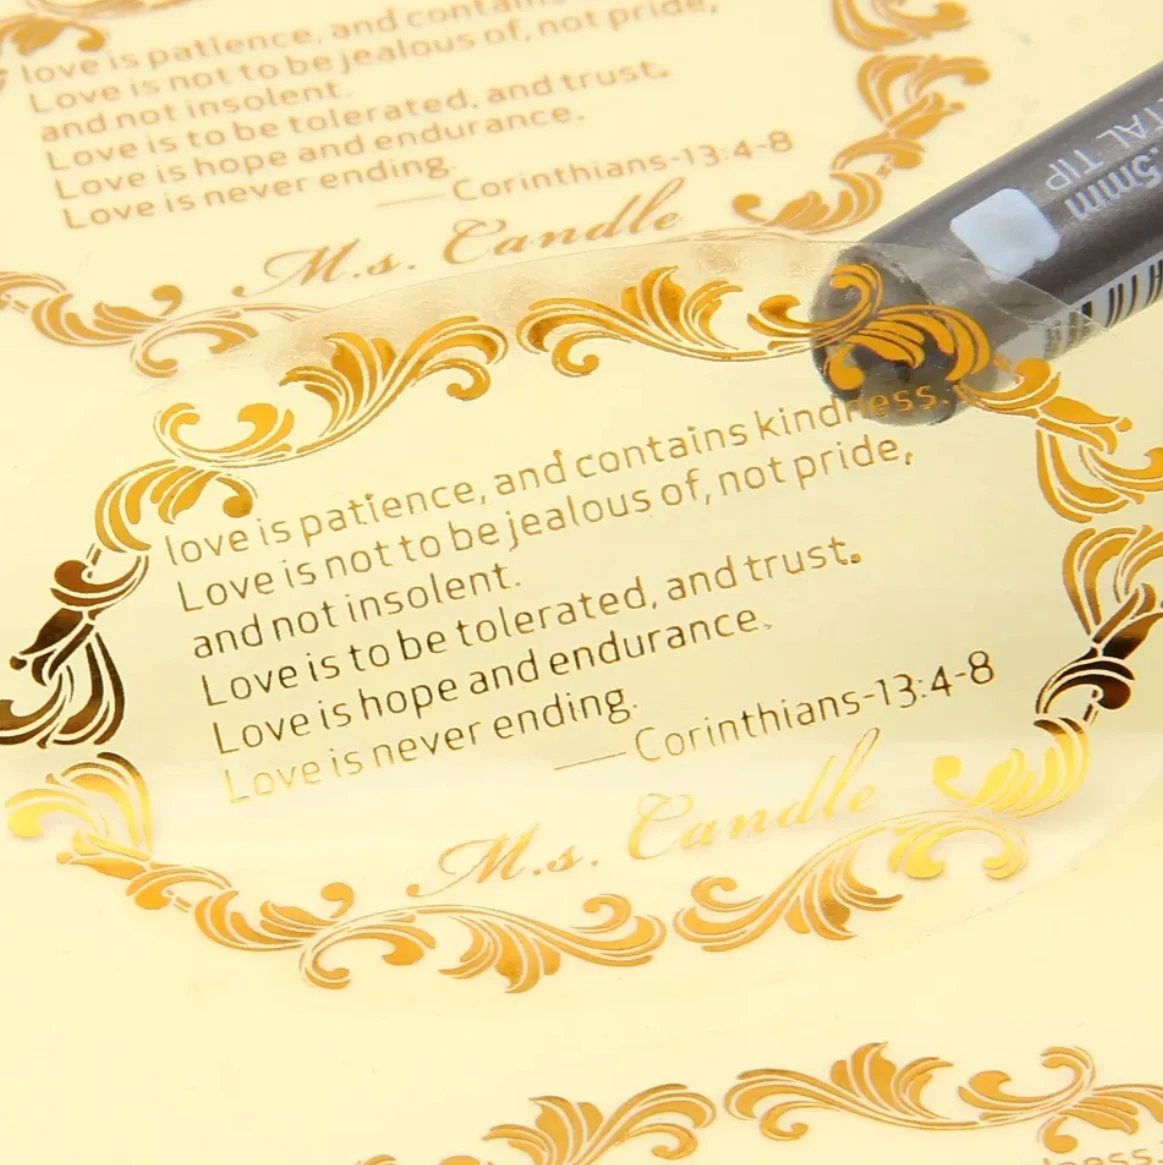 love is patience, and contains
Love is not to be jealous of, not pride,
and not insolent.
Love is to be tolerated, and trust.
Love is hope and endurance.
Love is never ending.
——Corinthians-13:4-8
M.s. Candle
.5mm
TAL TIP
love is patience, and contains kindness.
Love is not to be jealous of, not pride,
and not insolent.
Love is to be tolerated, and trust.
Love is hope and endurance.
Love is never ending.
——Corinthians-13:4-8
M.s. Candle